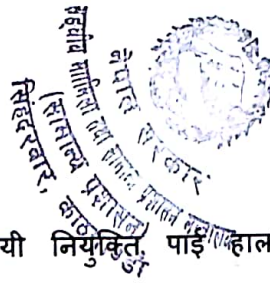 नेपाल सरकार
सङ्घीय मामिला तथा सामान्य प्रशासन मन्त्रालय
(सामान्य प्रशासन)
सिंहदरबार, काठमाडौं
यी नियुक्ति पाई हाल